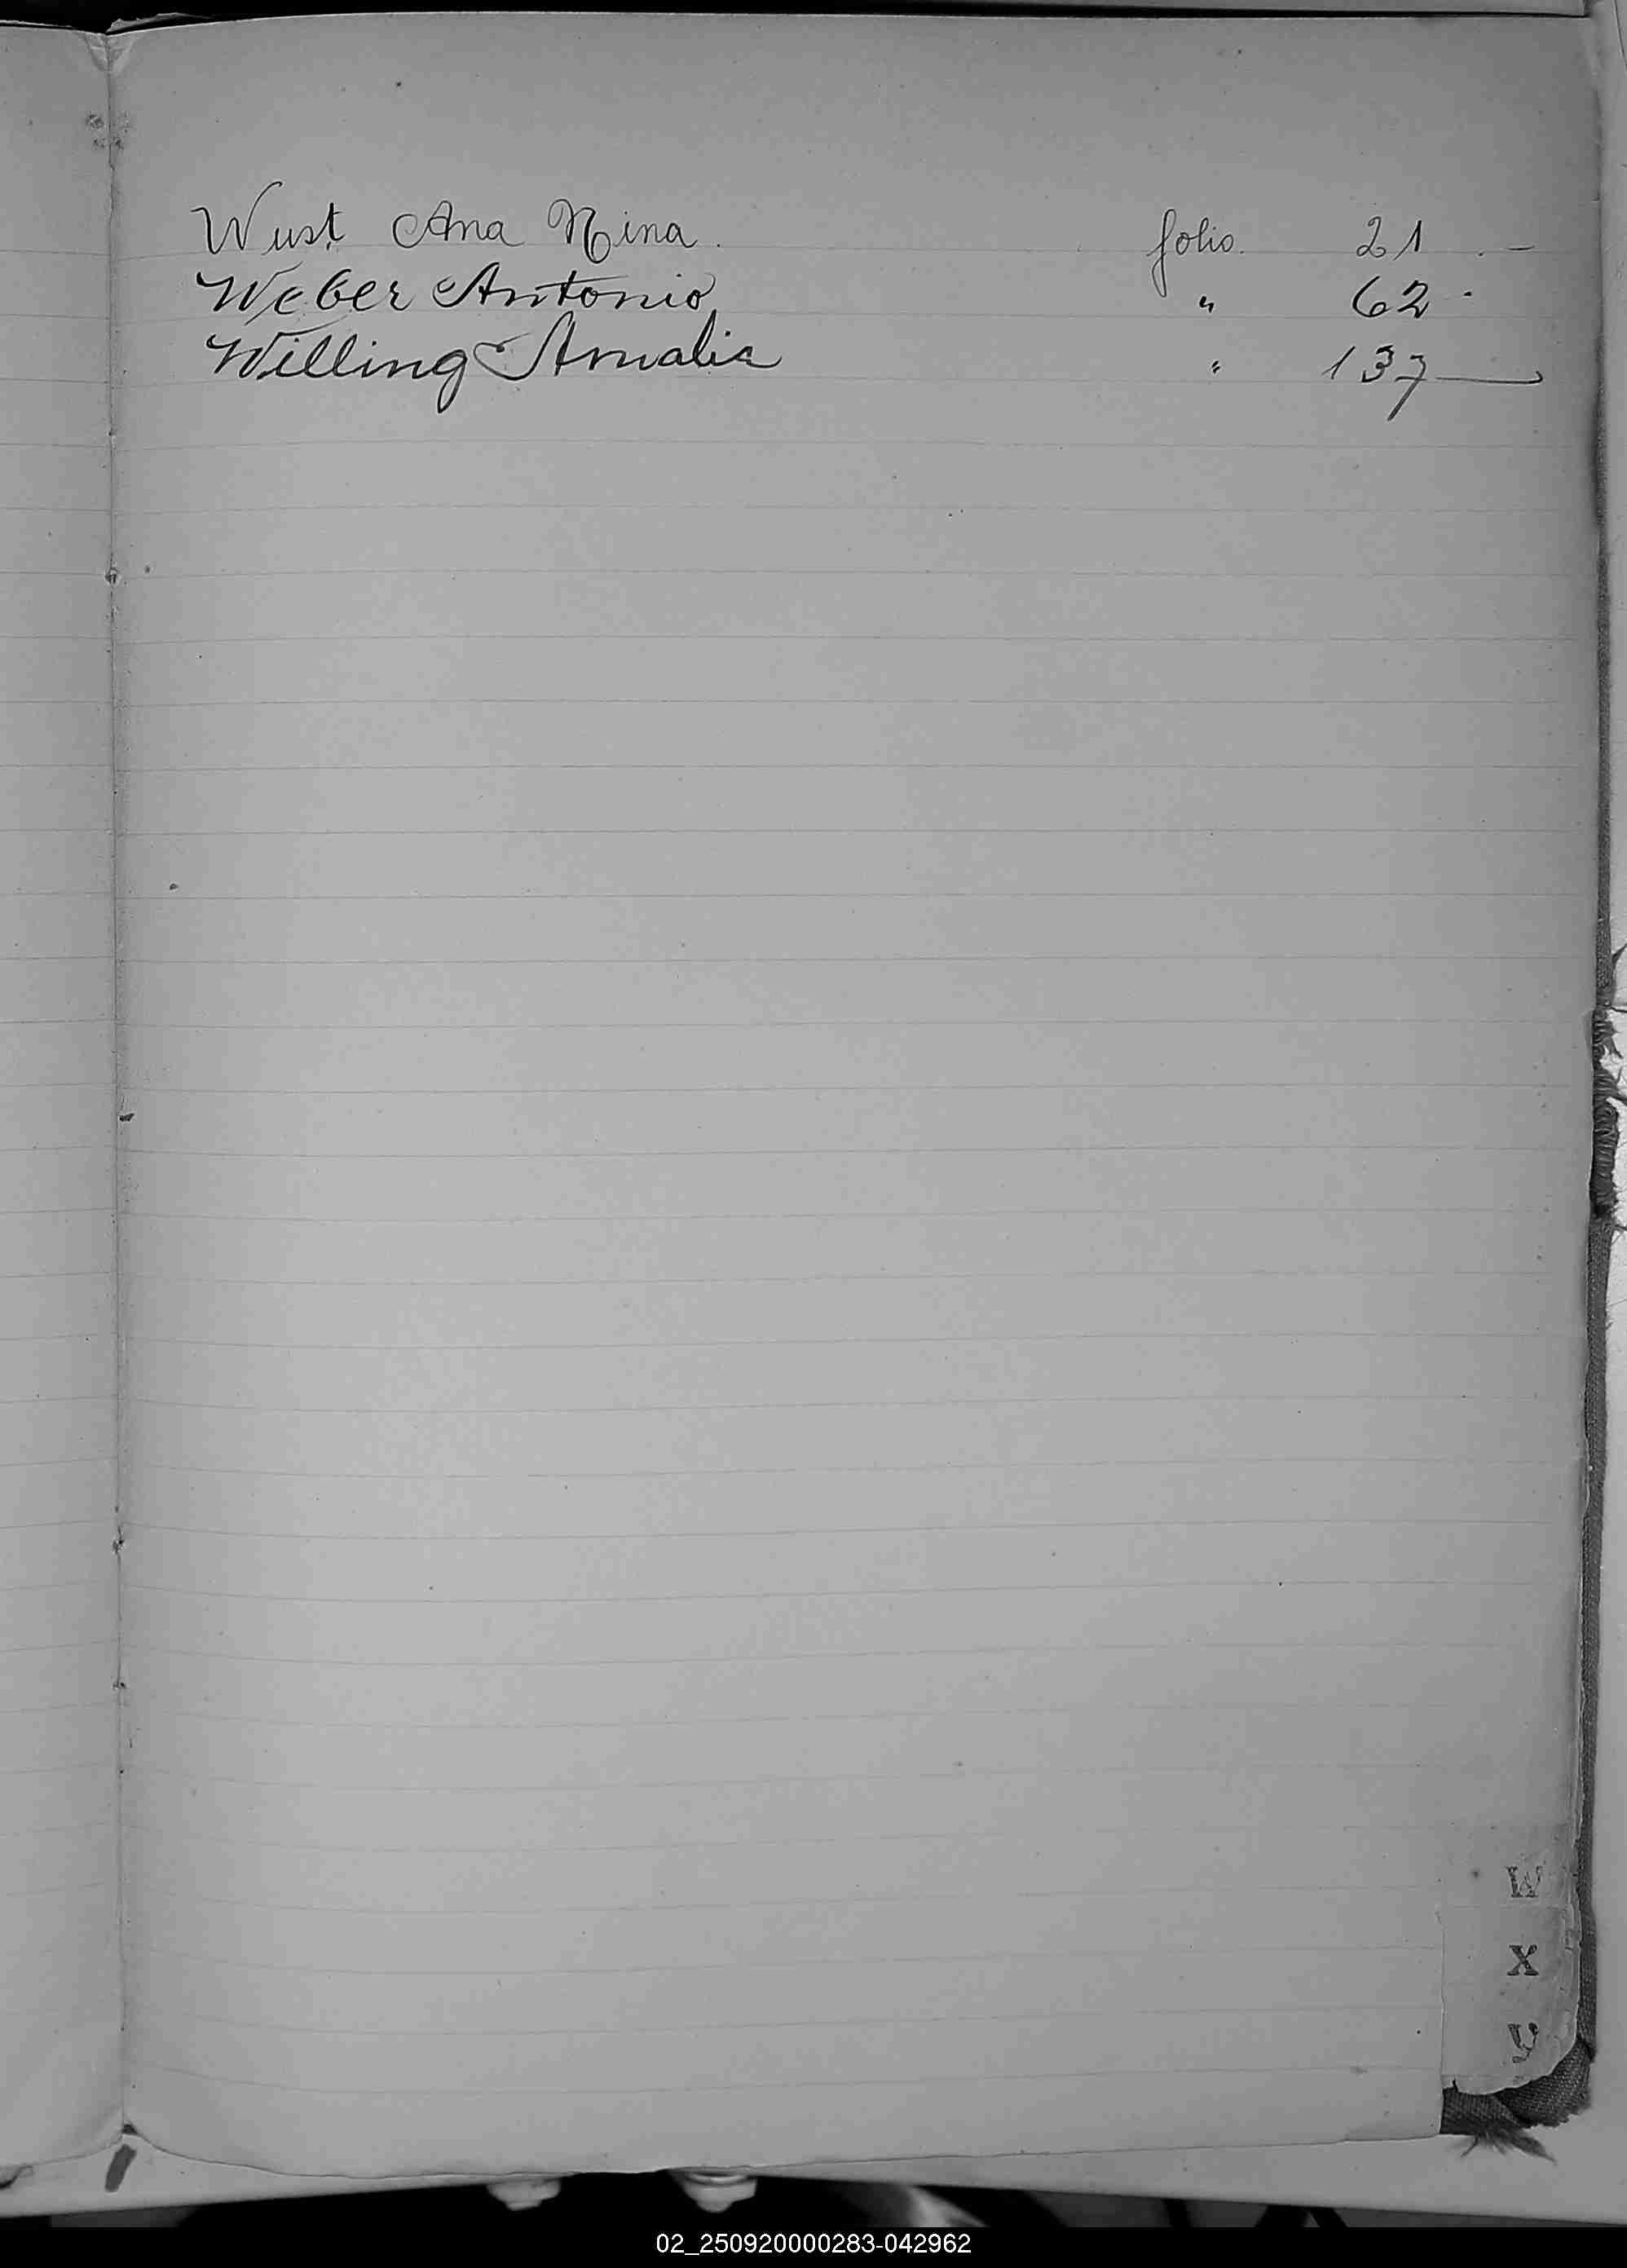 Wust Ana Nina. folio. 21 . —
Weber Antonio " 62 .
Willing Amalia " 137 —
W
X
Y
02_250920000283-042962